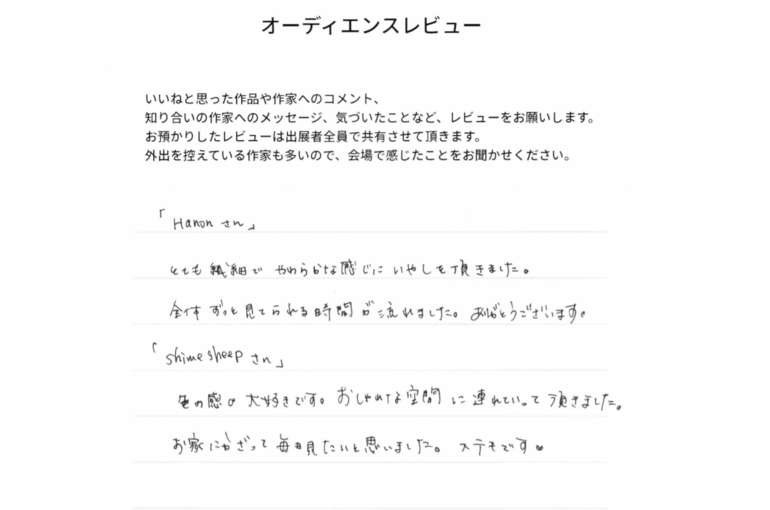 オーディエンスレビュー
いいねと思った作品や作家へのコメント、
知り合いの作家へのメッセージ、気づいたことなど、レビューをお願いします。
お預かりしたレビューは出展者全員で共有させて頂きます。
外出を控えている作家も多いので、会場で感じたことをお聞かせください。
「Hanon さん」
とても繊細で やわらかな感じに いやしを頂きました。
全体 ずっと見てられる時間が流れました。ありがとうございます。
「shime sheep さん」
色の感じ 大好きです。おしゃれな空間に連れていって頂きました。
お家にかざって毎日見たいと思いました。ステキです